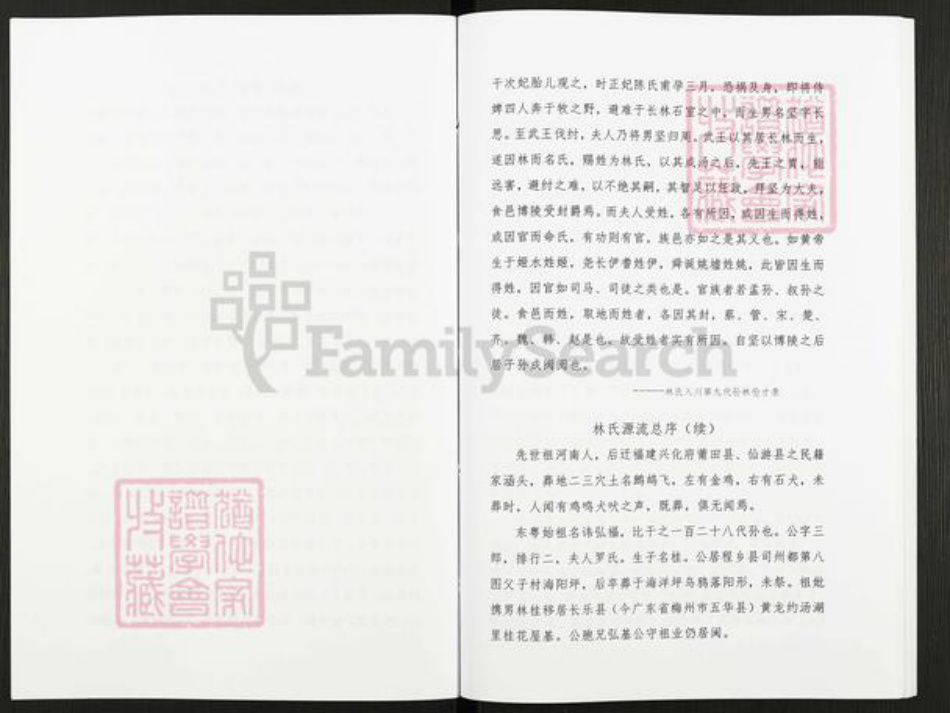 干次妃胎儿观之，时正妃陈氏甫孕三月，恐祸及身，即将侍
婢四人奔于牧之野，避难于长林石室之中，而生男名坚字长
思。至武王伐纣，夫人乃将男坚归周。武王以其居长林而生，
遂因林而名氏，赐姓为林氏，以其成汤之后，先王之胄，能
远害，避纣之难，以不绝其嗣，其智足以任政，拜坚为大夫，
食邑博陵受封爵焉。而夫人受姓，各有所因，或因生而得姓，
或因官而命氏，有功则有官，族邑亦如之是其义也。如黄帝
生于姬水姓姬，尧长伊耆姓伊，舜诞姚墟姓姚，此皆因生而
得姓，因官如司马、司徒之类也是。官族者若孟孙、叔孙之
徒。食邑而姓，取地而姓者，各因其封，蔡、管、宋、楚、
齐、魏、韩、赵是也。故受姓者实有所因。自坚以博陵之后
居子孙成阀阅也。
———林氏入川第九代孙林伯才录
林氏源流总序（续）
先世祖河南人，后迁福建兴化府莆田县、仙游县之民籍
家涵头，葬地二三穴土名鹧鸪飞，左有金鸡，右有石犬，未
葬时，人闻有鸡鸣犬吠之声，既葬，俱无闻焉。
东粤始祖名讳弘福，比干之一百二十八代孙也。公字三
郎，排行二，夫人罗氏，生子名桂。公居程乡县司州都第八
图父子村海阳坪，后卒葬于海洋坪乌鸦落阳形，未祭。祖妣
携男林桂移居长乐县（今广东省梅州市五华县）黄龙约汤湖
里桂花屋基。公胞兄弘基公守祖业仍居闽。
FamilySearch